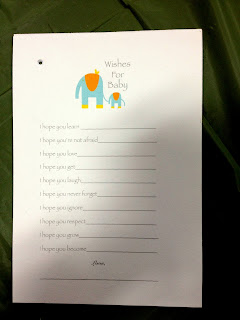 Wishes
For
Baby
I hope you learn
I hope you're not afraid
I hope you love
I hope you get
I hope you laugh
I hope you never forget
I hope you ignore
I hope you respect
I hope you grow
I hope you become
Love,